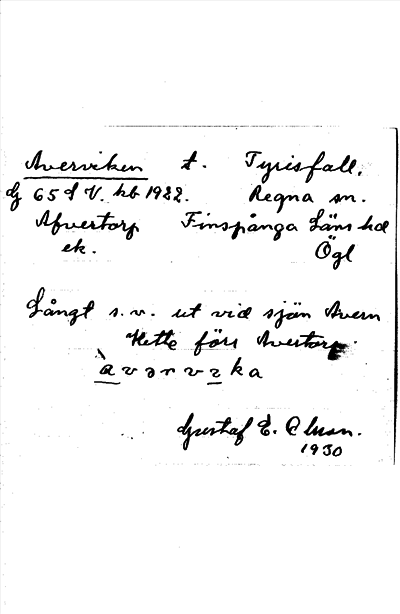 Averviken t. Tyrisfall.
dj 65 I V. kb 1922. Regna sn.
Afvertorp Finspånga Läns hd
ek. Ögl
Långt s.v. ut vid sjön Avern
Hette förr Avertorp.
àvərvɪka
Gustaf E. Olsson.
1930